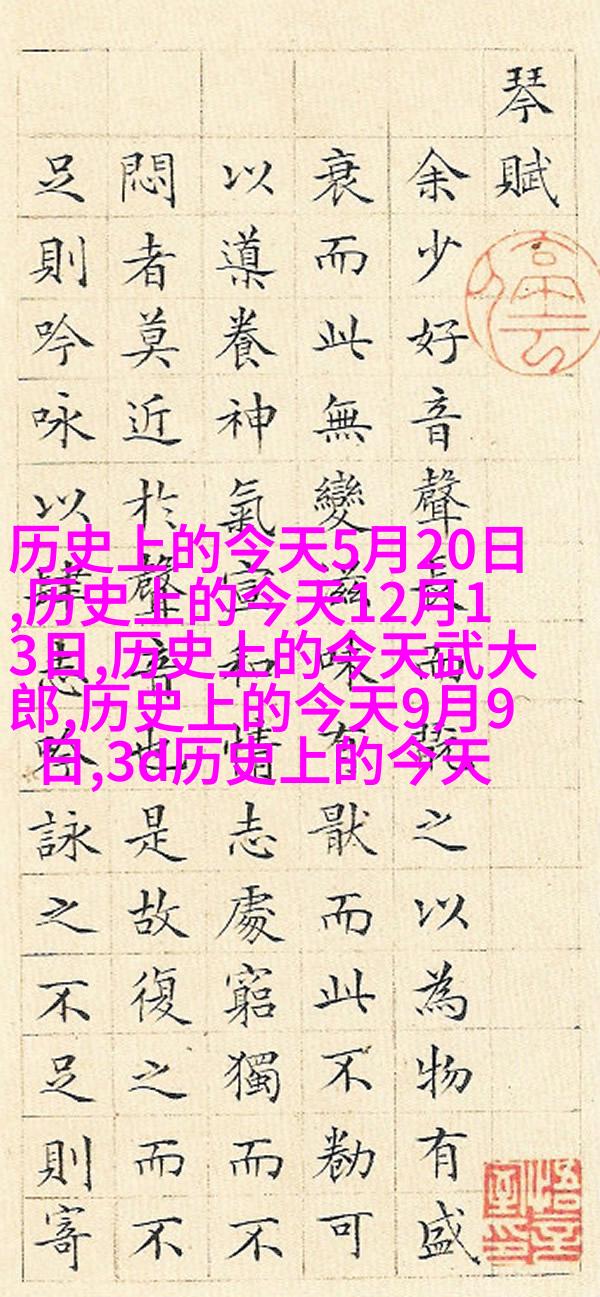 琴賦
余少好音聲長而翫之以為物有盛
衰而此無變滋味有猒而此不勌可
以導養神氣宣和情志處窮獨而不
悶者莫近於聲音也是故復之而不
足則吟咏以肆志吟詠之不足則寄
历史上的今天5月20日
,历史上的今天12月1
3日,历史上的今天武大
郎,历史上的今天9月9
日,3d历史上的今天